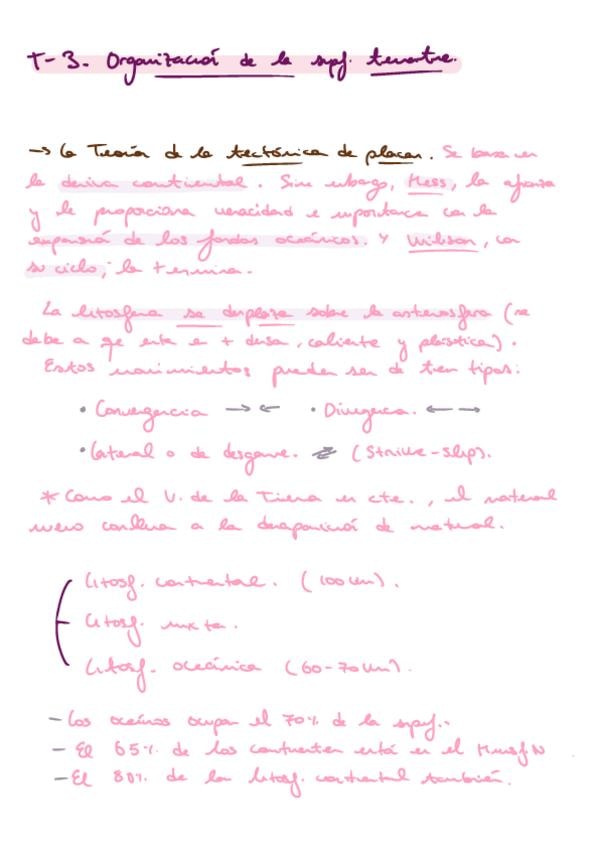 T-3. Organización de la supf. terrestre.
→ La Teoría de la tectónica de placas. Se basa en
la deriva continental. Sin embargo, Hess, la afianza
y le proporciona veracidad e importancia con la
expansión de los fondos oceánicos. Y Wilson, con
su ciclo, la termina.
La litosfera se desplaza sobre la astenosfera (se
debe a qe esta es + densa, caliente y plástica).
Estos movimientos pueden ser de tres tipos:
• Convergencia →← • Divergencia. ←→
• Lateral o de desgarre. ⇌ (Strike-slip).
* Como el V. de la Tierra es cte., el material
nuevo conlleva a la desaparición de material.
Litosf. continental. (100km).
Litosf. mixta.
Litosf. oceánica (60-70km).
- Los océanos ocupan el 70% de la supf..
- El 65% de los continentes está en el Hemisf N
- El 80% de la litosf. continental también.